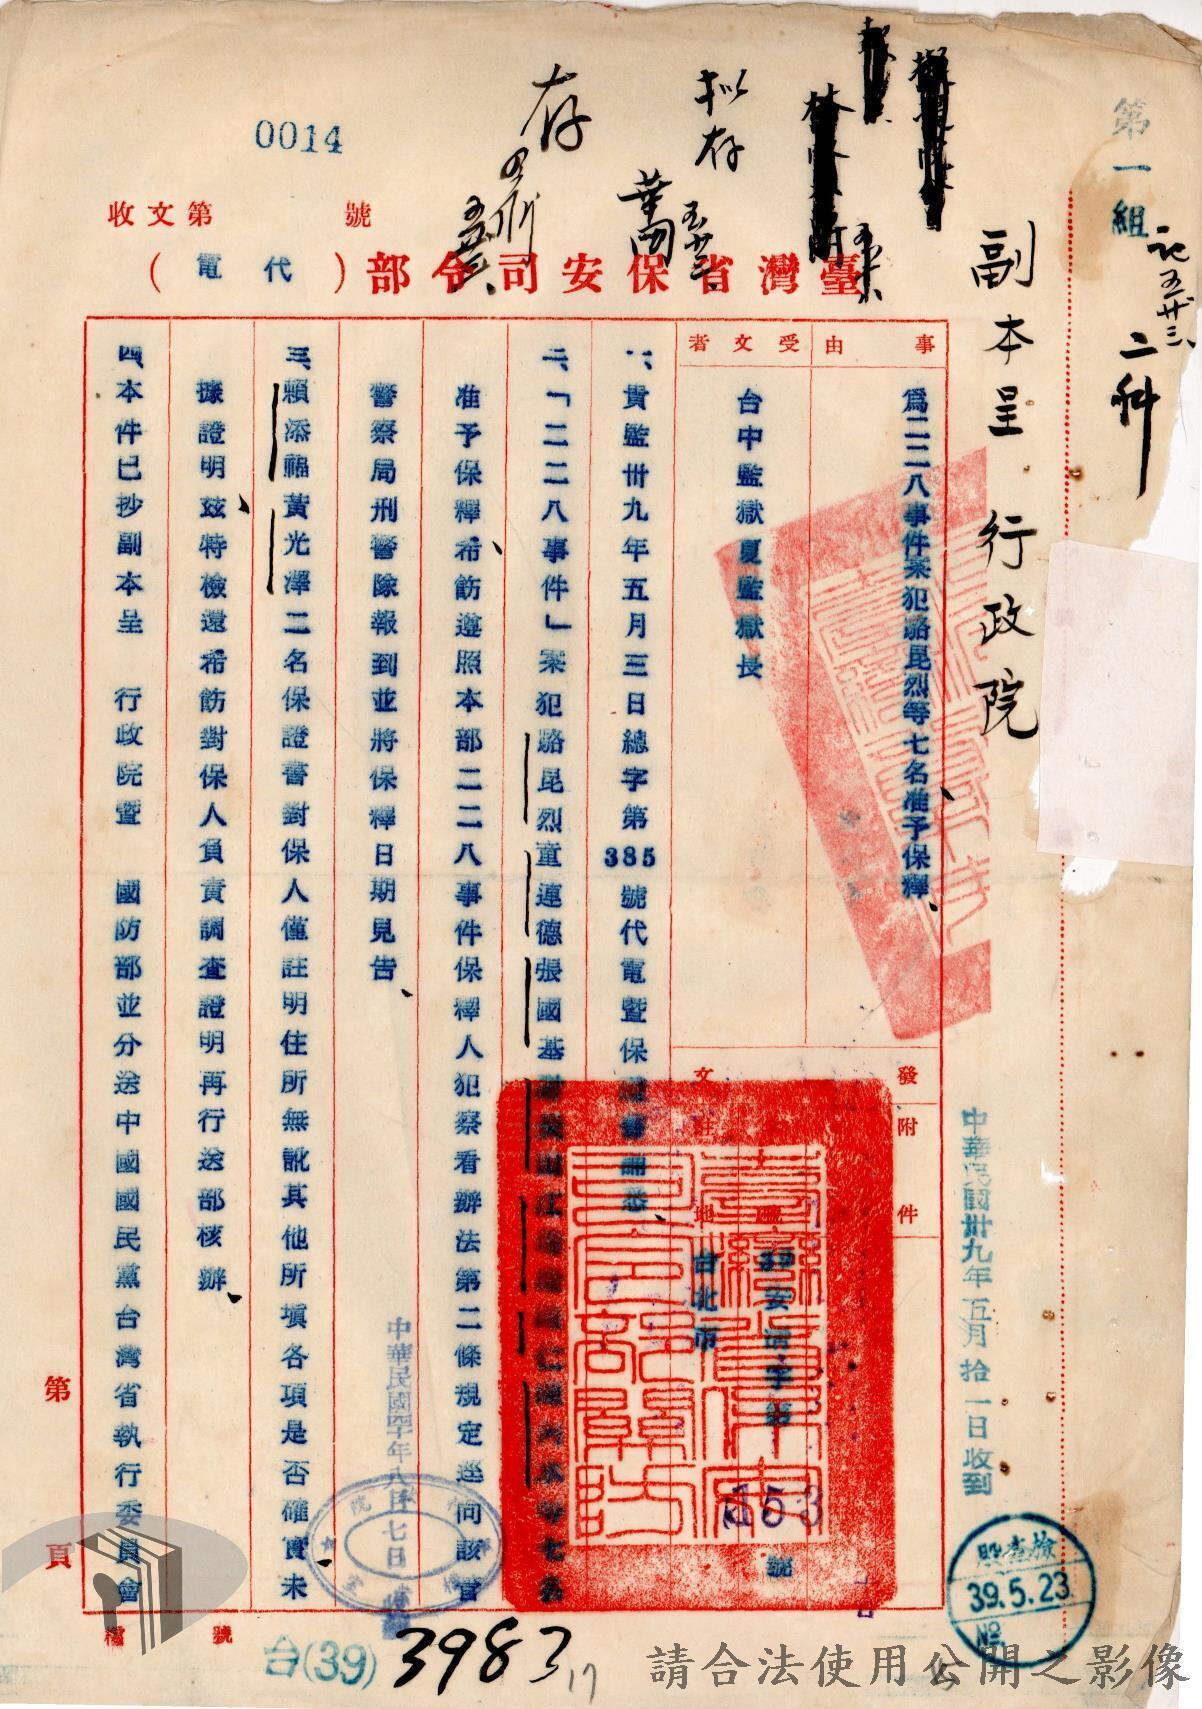 0014
第一組
二科
副本呈 行政院
拟存
存
收文第 號
臺灣省保安司令部(代電)
事由
為二二八事件案犯路昆烈等七名准予保釋、
受文者
台中監獄夏監獄長
發文
附件
駐地
台北市
39安清字第
153
號
一、貴監卅九年五月三日總字第385號代電暨保
二、「二二八事件」案犯路昆烈童連德張國基
等七名
准予保釋、希飭遵照本部二二八事件保釋人犯察看辦法第二條規定逕向該管
警察局刑警隊報到並將保釋日期見告、
三、賴添福黃光澤二名保證書對保人僅註明住所無訛其他所填各項是否確實未
據證明、茲特檢還希飭對保人負責調查證明再行送部核辦、
四、本件已抄副本呈 行政院暨 國防部並分送中國國民黨台灣省執行委員會
第 頁
中華民國卅九年五月拾一日收到
檢查股
39.5.23
No.
檔號
台(39)
3983
17
請合法使用公開之影像